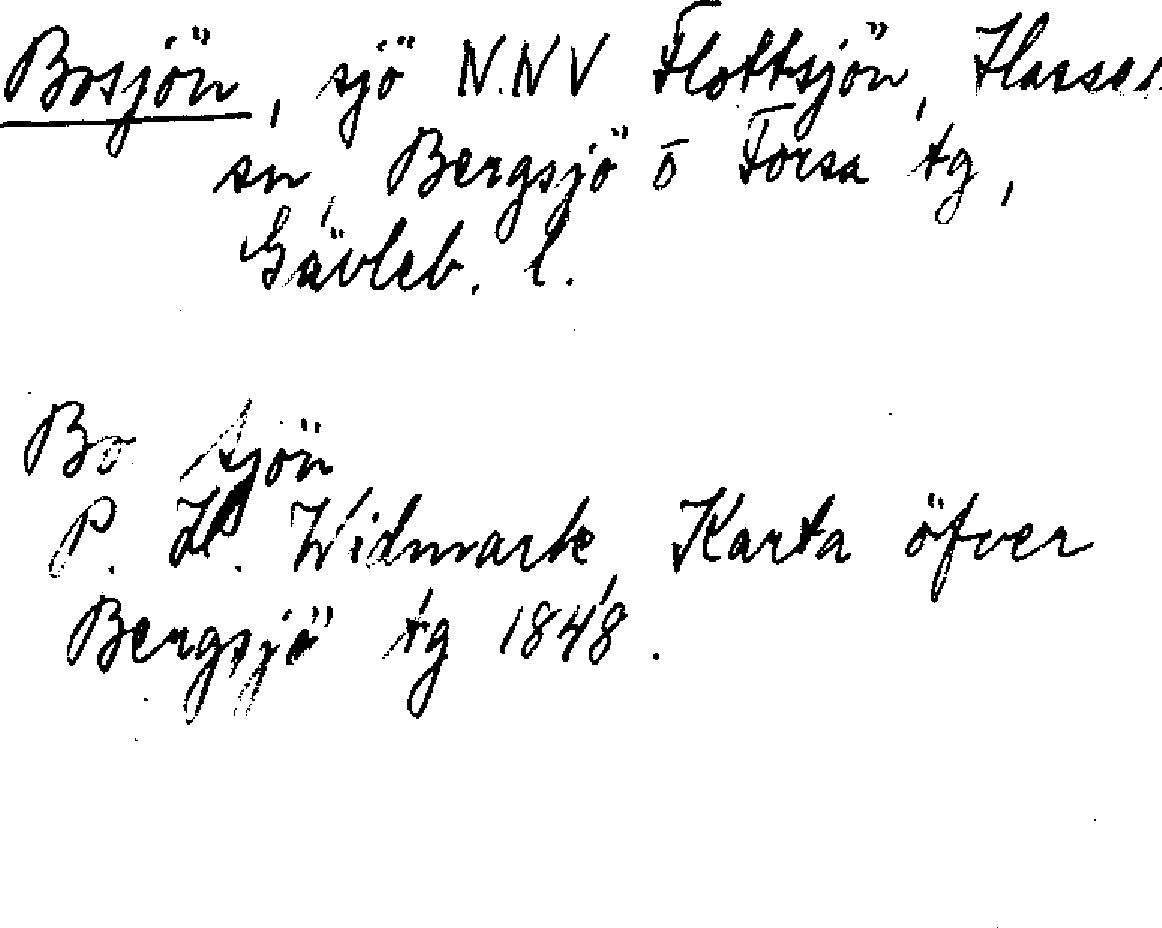 Bosjön, sjö N.NV Flottsjön, Hassel
sn, Bergsjö o Forsa tg,
Gävleb. l.
Bo sjön
P. H. Widmark, Karta öfver
Bergsjö tg 1848.